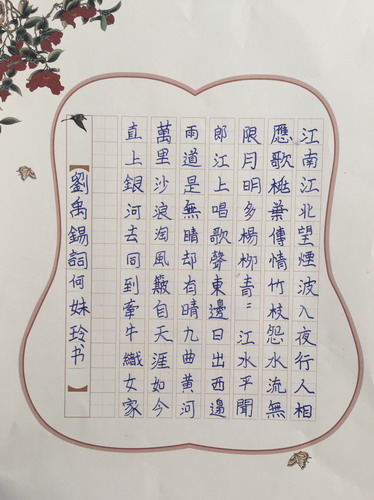 江南江北望煙波入夜行人相
應歌桃葉傳情竹枝怨水流無
限月明多楊柳青〃江水平聞
郎江上唱歌聲東邊日出西邊
雨道是無晴却有晴九曲黄河
萬里沙浪淘風簸自天涯如今
直上銀河去同到牽牛織女家
【劉禹錫詞何妹玲书】